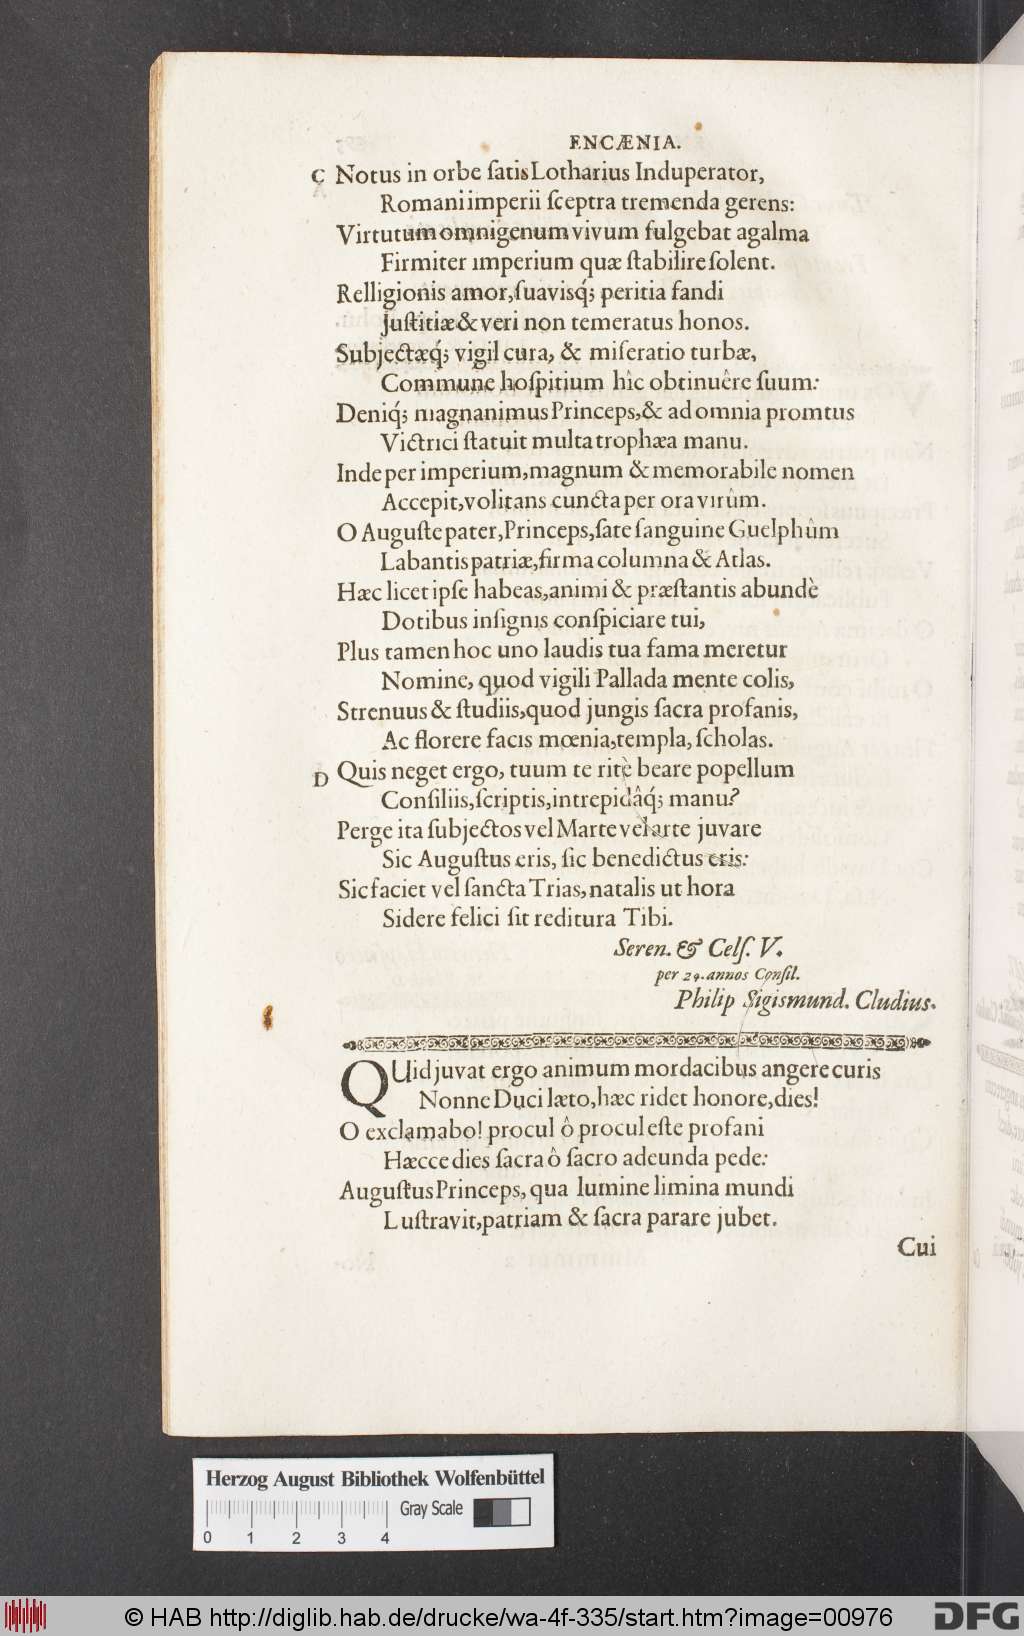 ENCÆNIA.
C Notus in orbe ſatis Lotharius Induperator,
Romani imperii ſceptra tremenda gerens:
Virtutum omnigenum vivum fulgebat agalma
Firmiter imperium quæ ſtabilire ſolent.
Relligionis amor, ſuavisq́; peritia fandi
Juſtitiæ & veri non temeratus honos.
Subjectæq́; vigil cura, & miſeratio turbæ,
Commune hoſpitium hîc obtinuêre ſuum:
Deniq́; magnanimus Princeps, & ad omnia promtus
Victrici ſtatuit multa trophæa manu.
Inde per imperium, magnum & memorabile nomen
Accepit, volitans cuncta per ora virûm.
O Auguſte pater, Princeps, ſate ſanguine Guelphûm
Labantis patriæ, firma columna & Atlas.
Hæc licet ipſe habeas, animi & præſtantis abundè
Dotibus inſignis conſpiciare tui,
Plus tamen hoc uno laudis tua fama meretur
Nomine, quod vigili Pallada mente colis,
Strenuus & ſtudiis, quod jungis ſacra profanis,
Ac florere facis mœnia, templa, ſcholas.
D Quis neget ergo, tuum te ritè beare popellum
Conſiliis, ſcriptis, intrepidâq́; manu?
Perge ita ſubjectos vel Marte vel arte juvare
Sic Auguſtus eris, ſic benedictus eris:
Sic faciet vel ſancta Trias, natalis ut hora
Sidere felici ſit reditura Tibi.
Seren. & Celſ. V.
per 24. annos Conſil.
Philip Sigismund. Cludius.
QUid juvat ergo animum mordacibus angere curis
Nonne Duci læto, hæc ridet honore, dies!
O exclamabo! procul ô procul eſte profani
Hæcce dies ſacra ô ſacro adeunda pede:
Auguſtus Princeps, qua lumine limina mundi
Luſtravit, patriam & ſacra parare jubet.
Cui
Herzog August Bibliothek Wolfenbüttel
Gray Scale
0 1 2 3 4
© HAB http://diglib.hab.de/drucke/wa-4f-335/start.htm?image=00976
DFG